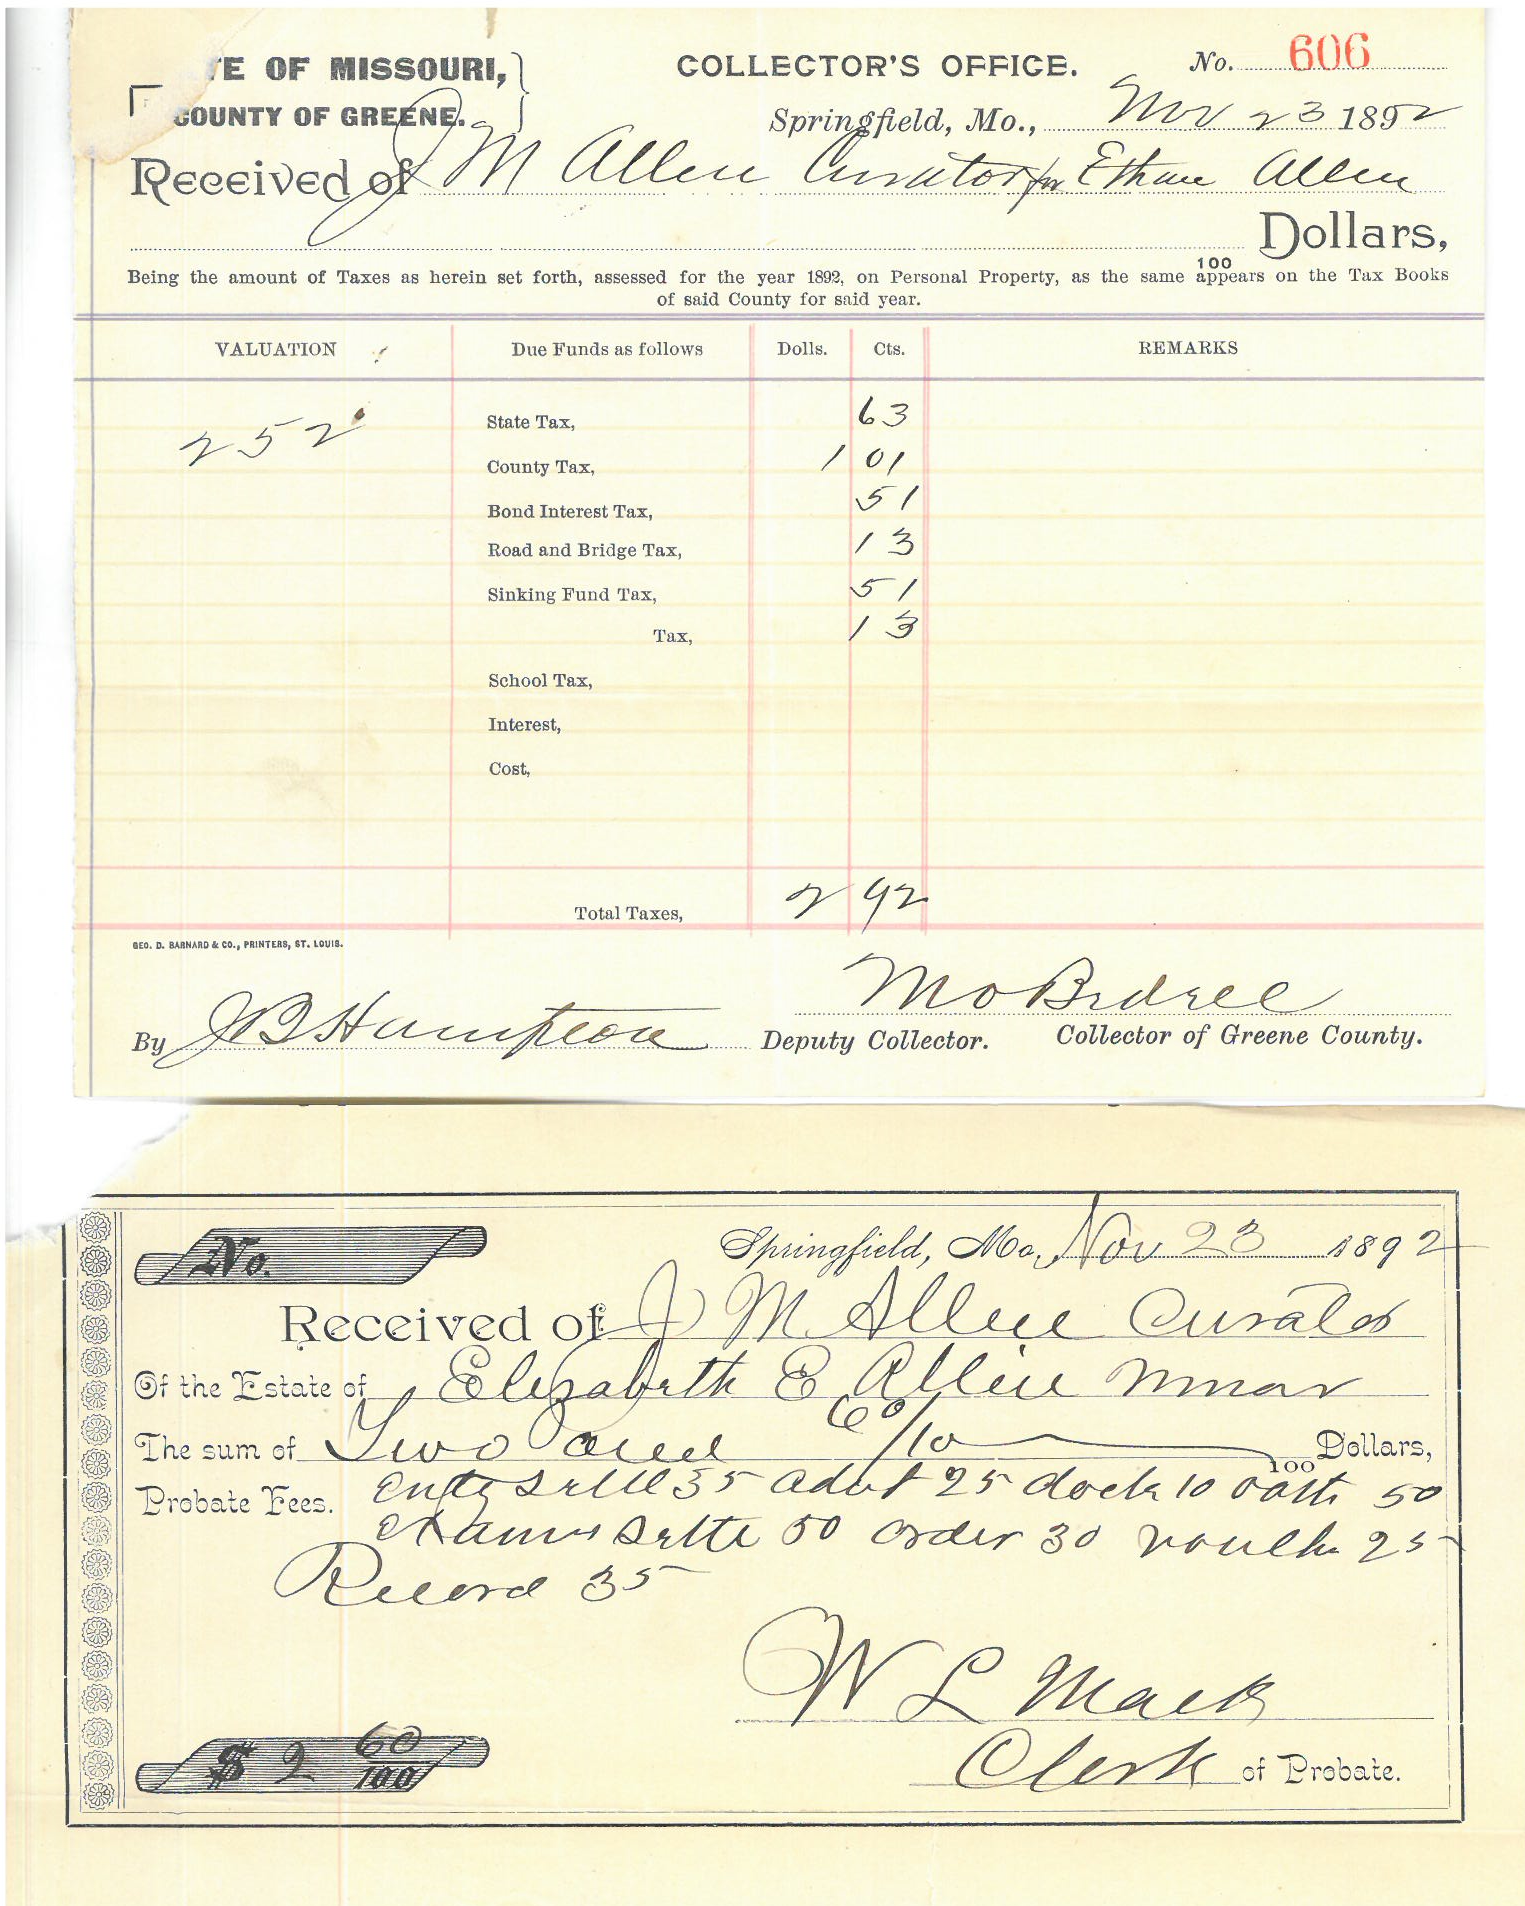 TE OF MISSOURI,
COUNTY OF GREENE.
COLLECTOR'S OFFICE.
No. 606
Springfield, Mo., Nov 23 1892
Received of J M Allen Curator for Ethan Allen
Dollars,
100
Being the amount of Taxes as herein set forth, assessed for the year 1892, on Personal Property, as the same appears on the Tax Books
of said County for said year.
VALUATION Due Funds as follows Dolls. Cts. REMARKS
252 State Tax, 63
County Tax, 1 01
Bond Interest Tax, 51
Road and Bridge Tax, 13
Sinking Fund Tax, 51
Tax, 13
School Tax,
Interest,
Cost,
Total Taxes, 2 92
GEO. D. BARNARD & CO., PRINTERS, ST. LOUIS.
By J B Hampton Deputy Collector. Collector of Greene County.
No.
Springfield, Mo, Nov 23 1892
Received of J M Allen Curator
Of the Estate of Elizabeth E Allen Minor
The sum of Two and 60/10 100 Dollars,
Probate Fees. settl 35 advt 25 dock 10 oath 50
Exam settl 50 order 30 vouch 25
Record 35
W L Mack
$ 2 60/100
Clerk of Probate.